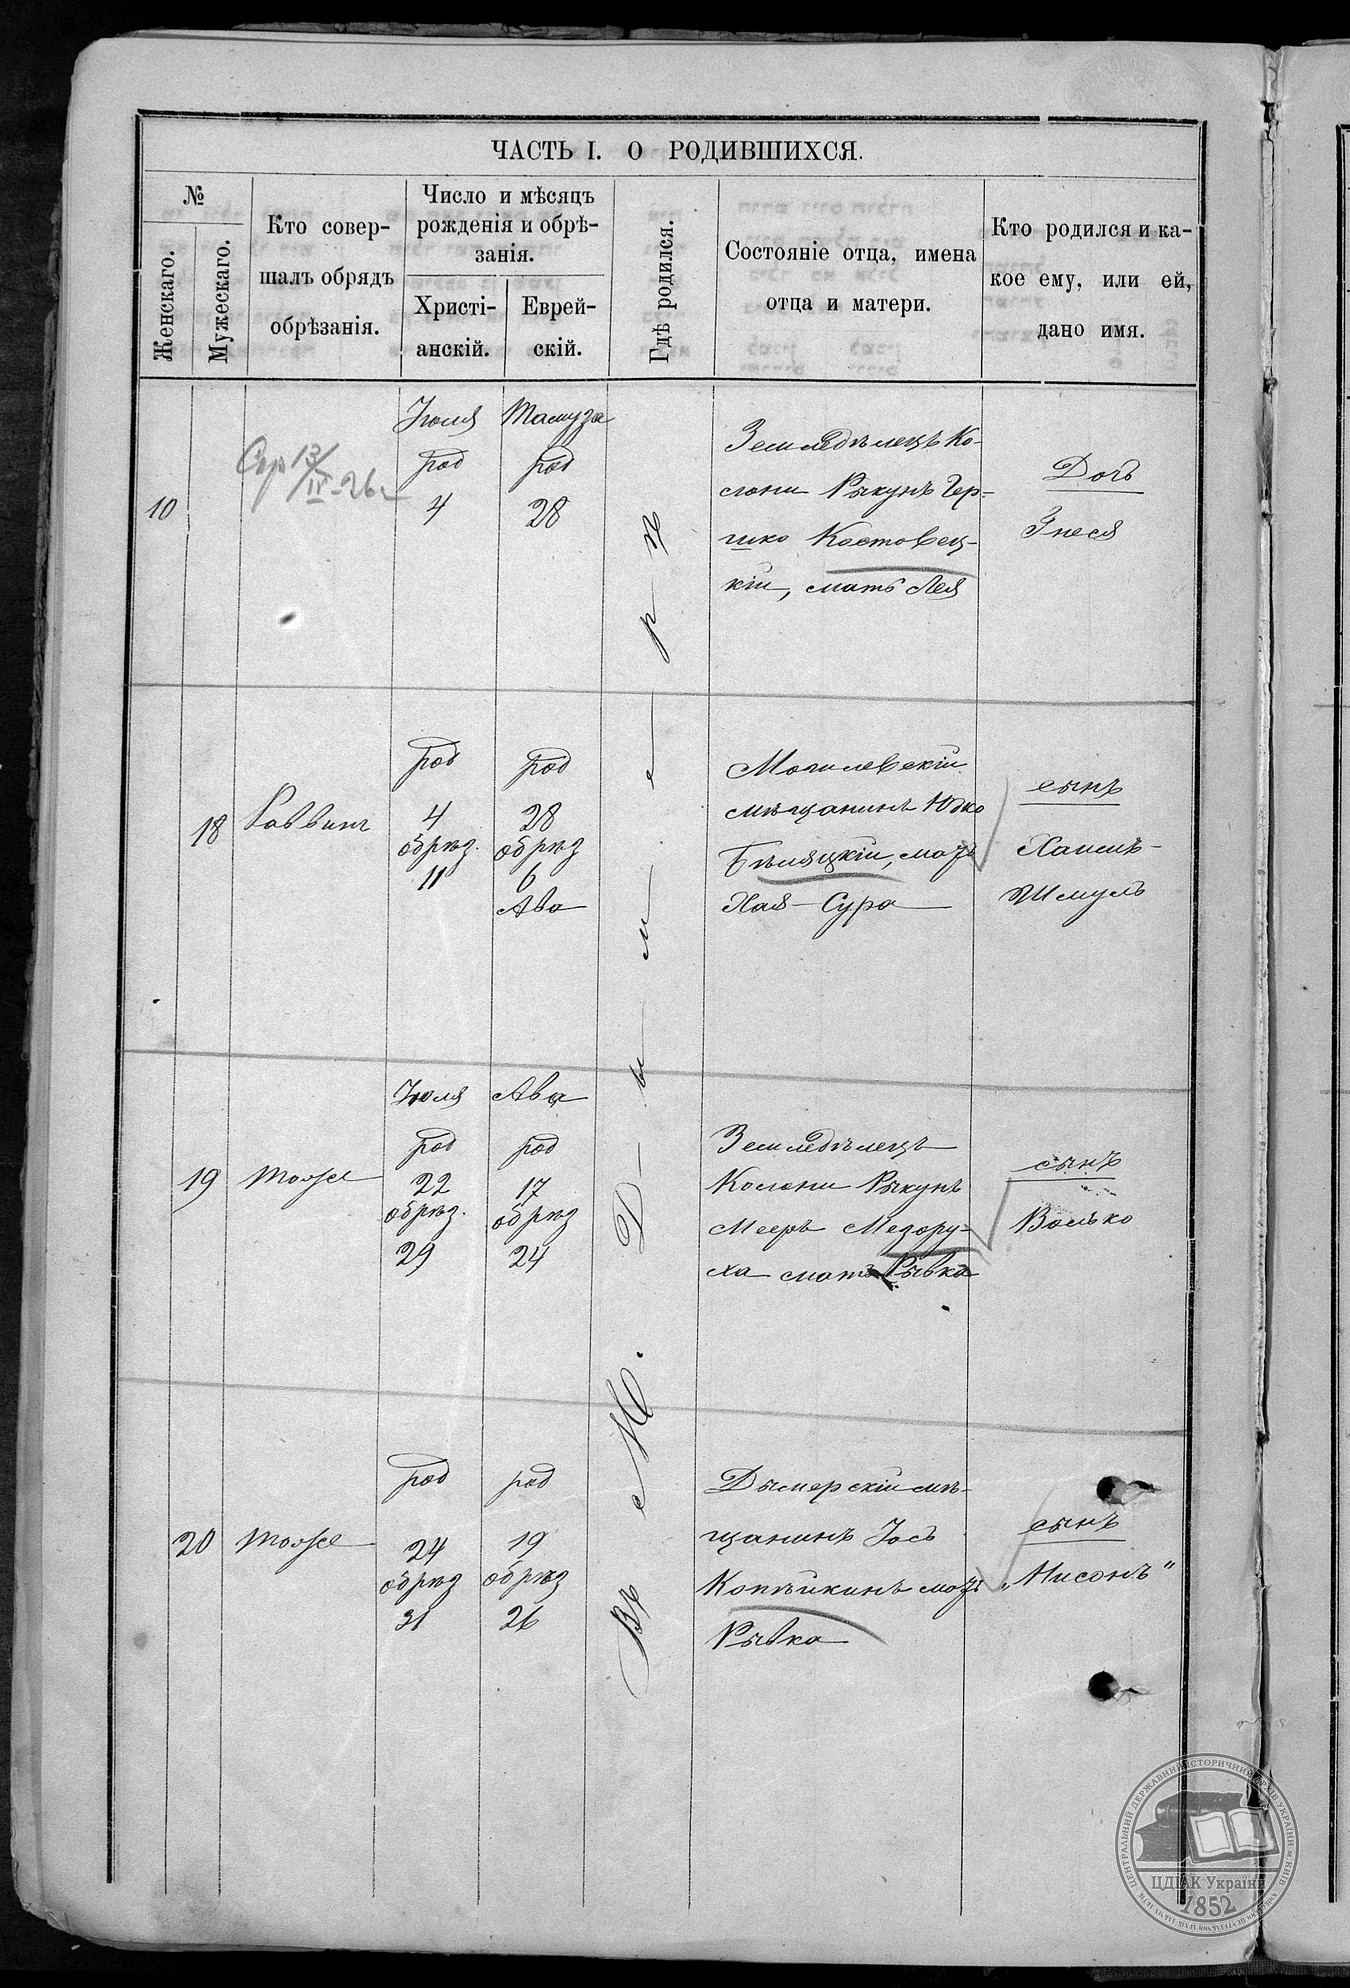 ЧАСТЬ I. О РОДИВШИХСЯ.
№
Женскаго.
Мужескаго.
Кто совер-
шалъ обрядъ
обрѣзанія.
Число и мѣсяцъ
рожденія и обрѣ-
занія.
Христі-
анскій.
Еврей-
скій.
Гдѣ родился.
Состояніе отца, имена
отца и матери.
Кто родился и ка-
кое ему, или ей,
дано имя.
Въ М. Дымерѣ
10
Іюля
род
4
Тамуза
род
28
Земледѣлецъ Ко-
лони Рыкунъ Гер-
шко Костовец-
кій, мать Лея
Дочь
Гнеся
18
Раввинъ
род
4
обрѣз.
11
род
28
обрѣз
6
Ава
Могилевскій
мѣщанинъ Юдко
Бѣляцкій, мать
Хая-Сура
сынъ
Хаимъ-
Шмуль
19
тотже
Іюля
род
22
обрѣз.
29
Ава
род
17
обрѣз
24
Земледѣлецъ
Колони Рыкунъ
Мееръ Мезору-
ха мать Рывка
сынъ
Волько
20
тотже
род
24
обрѣз
31
род
19
обрѣз
26
Дымерскій мѣ-
щанинъ Іось
Копѣйкинъ мать
Рывка
сынъ
„Нисонъ"
ЦЕНТРАЛЬНИЙ ДЕРЖАВНИЙ ІСТОРИЧНИЙ АРХІВ УКРАЇНИ м. КИЇВ
ЦДІАК України
1852